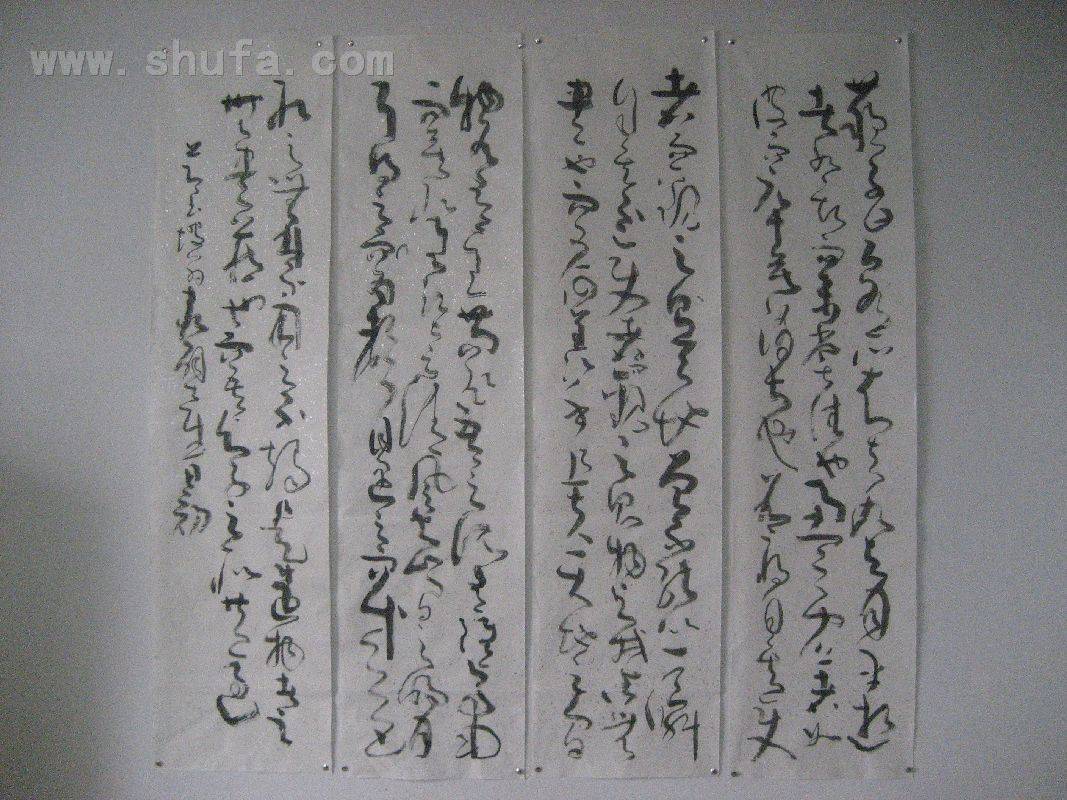 www.shufa.com
蘇子曰客亦知夫水與月乎逝
者如斯而未嘗往也盈虛者如
彼而卒莫消長也蓋將自其變
者而觀之則天地曾不能以一瞬
自其不變者而觀之則物與我皆無
盡也而又何羨乎且夫天地之間
物各有主苟非吾之所有雖一毫
而莫取惟江上之清風與山間之明月
耳得之而為聲目遇之而成色
取之無禁用之不竭是造物者之
無盡藏也而吾與子之所共適